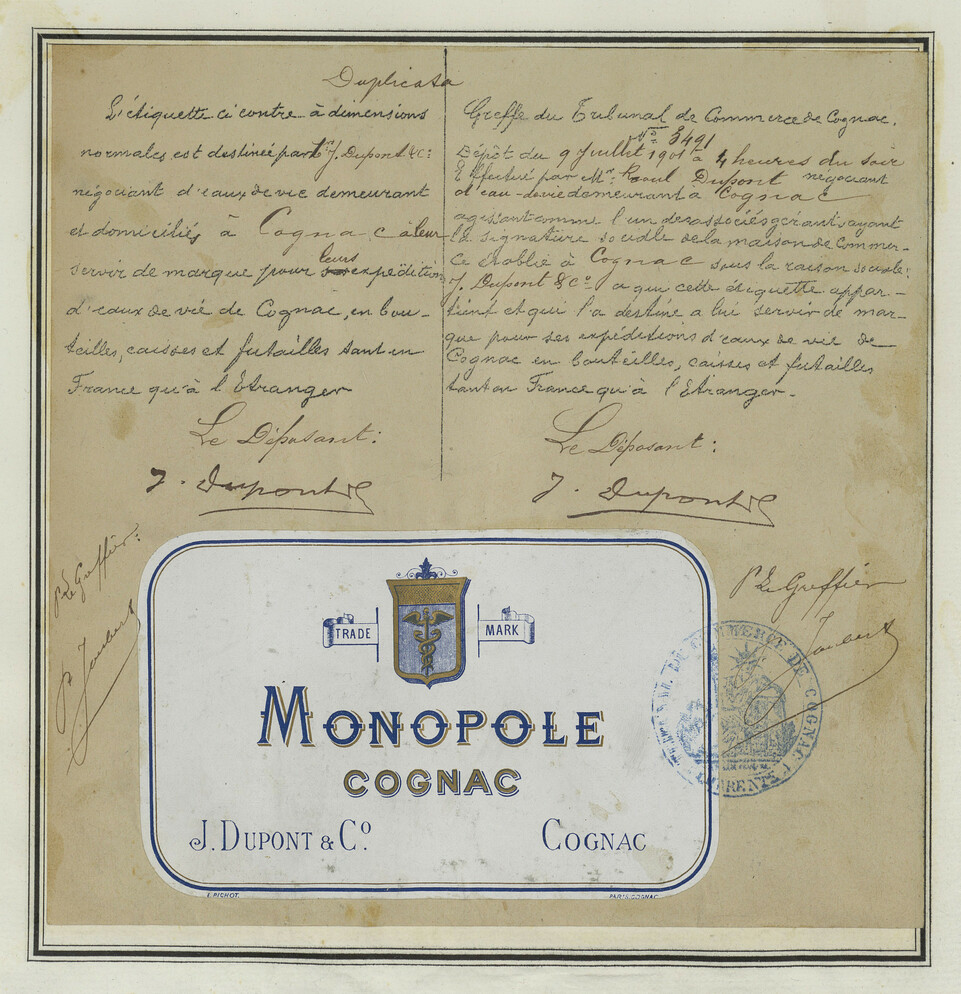 Duplicata
L'étiquette ci contre à dimensions
normales est destinée par J. Dupont & C:
négociant d'eaux de vie demeurant
et domiciliés à Cognac à leur
servir de marque pour leurs expédition
d'eaux de vie de Cognac, en bou-
teilles, caisses et futailles tant en
France qu'à l'Etranger
Le Déposant:
J. Dupont & C
Greffe du Tribunal de Commerce de Cognac.
No 3491
Dépôt du 9 Juillet 1901 à 4 heures du soir
Effectué par Mr. Raoul Dupont négociant
d'eau-de-vie demeurant à Cognac
agissant comme l'un des associés gérant, ayant
la signature sociale de la maison de Commer-
ce établie à Cognac sous la raison sociale:
J. Dupont & Co a qui cette étiquette appar-
tient et qui l'a destiné a lui servir de mar-
que pour ses expéditions d'eaux de vie de
Cognac en bouteilles, caisses et futailles
tant en France qu'à l'Etranger.
Le Déposant:
J. Dupont & C
P Le Greffier:
P Le Greffier
TRADE MARK
MONOPOLE
COGNAC
J. DUPONT & Co. COGNAC
E. PICHOT. PARIS. COGNAC
TRIBUNAL DE COMMERCE DE COGNAC
CHARENTE